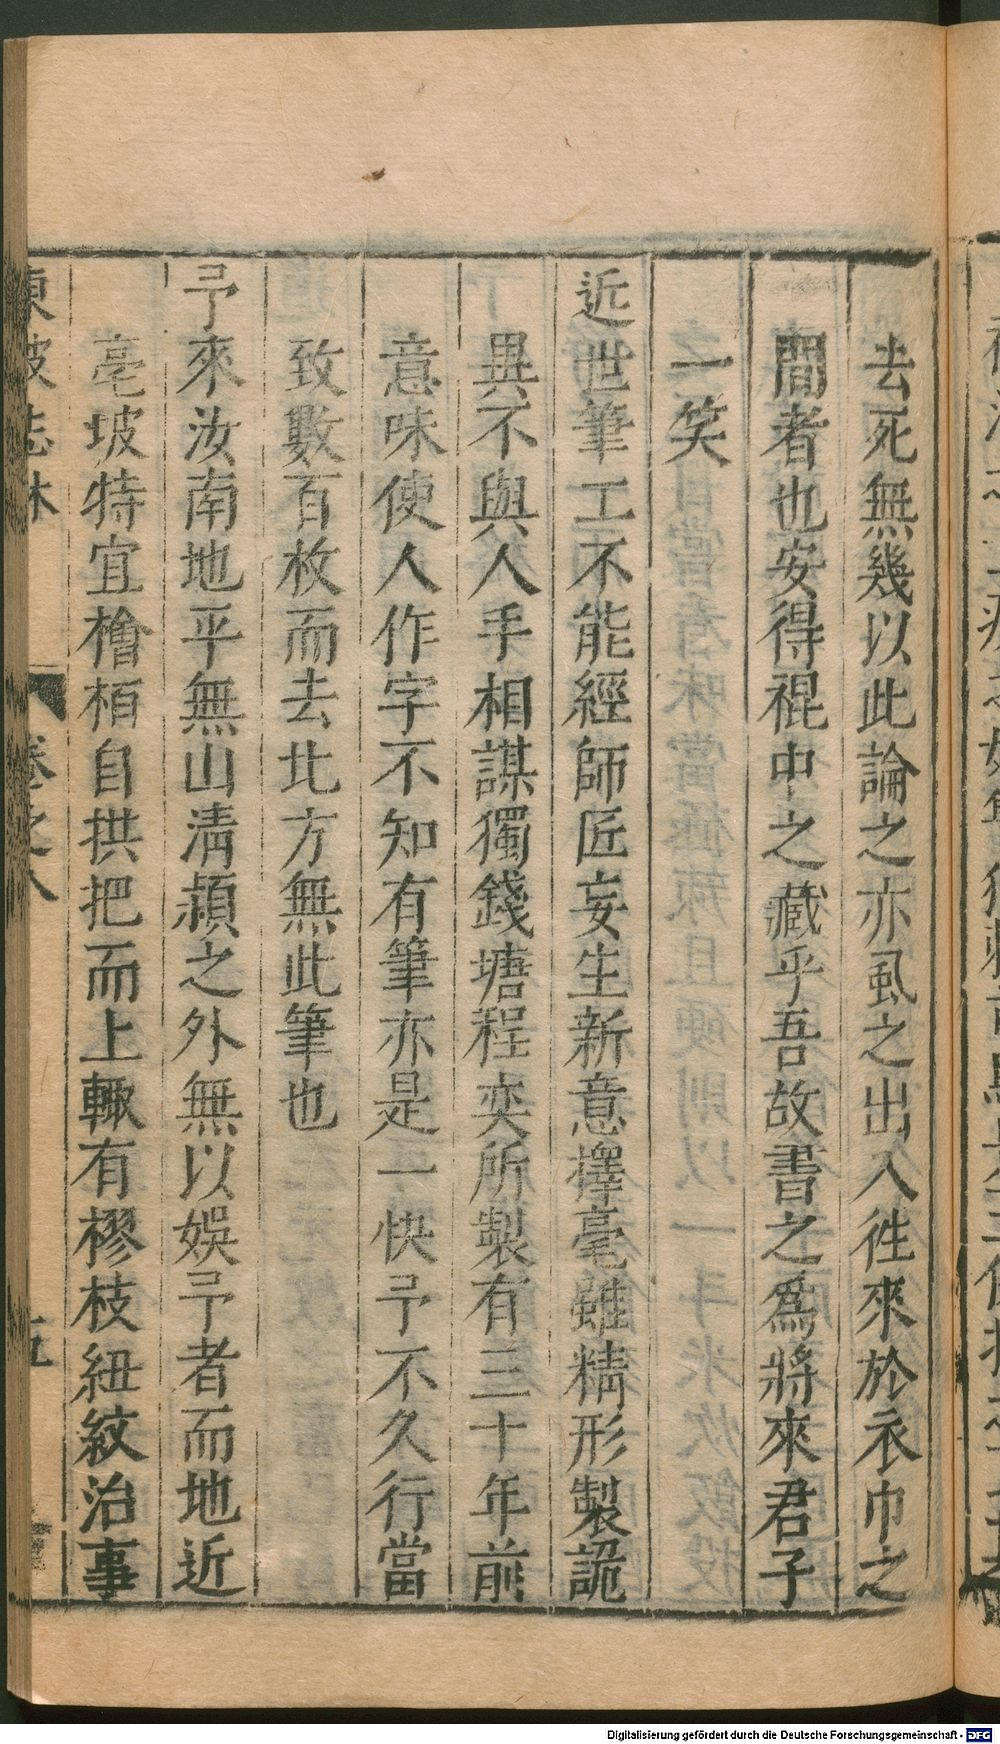 去死無幾以此論之亦虱之出入徃來於衣巾之
間者也安得裩中之藏乎吾故書之爲將來君子
一笑
近世筆工不能經師匠妄生新意擇毫雖精形製詭
異不與人手相謀獨錢塘程奕所製有三十年前
意味使人作字不知有筆亦是一快予不久行當
致數百枚而去北方無此筆也
予來汝南地平無山淸潁之外無以娛予者而地近
亳坡特宜檜栢自拱把而上輙有樛枝紐紋治事
東坡志林 卷之八 五
Digitalisierung gefördert durch die Deutsche Forschungsgemeinschaft - DFG